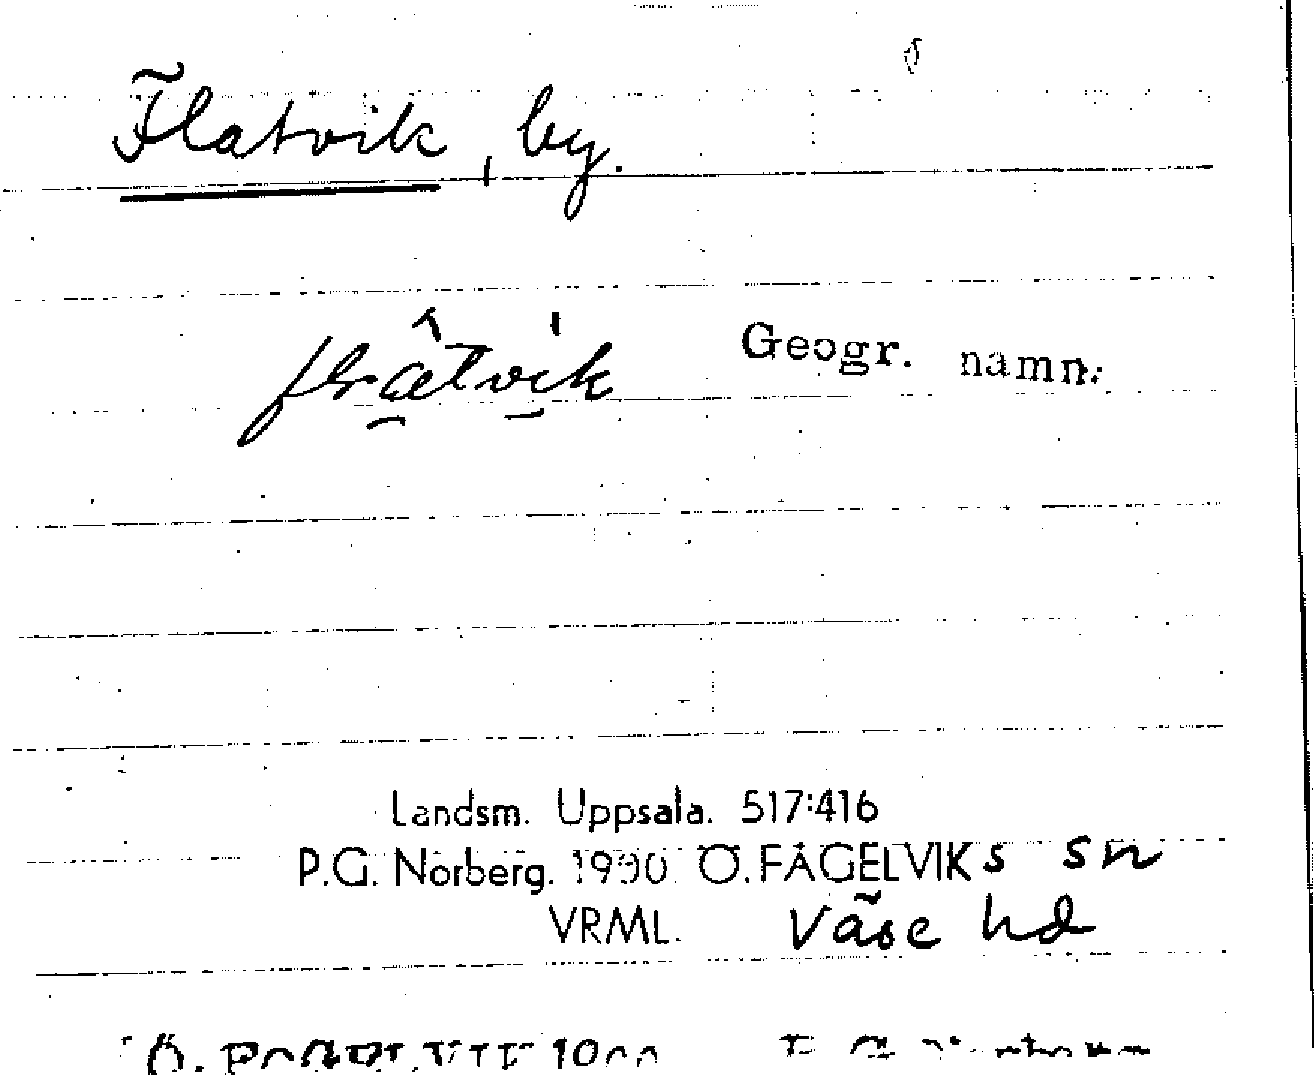 Flatvik, by.
Geogr. namn.
Landsm. Uppsala. 517:416
P.G. Norberg. 1930 Ö. FÅGELVIKS sn
VRML. Väse hd